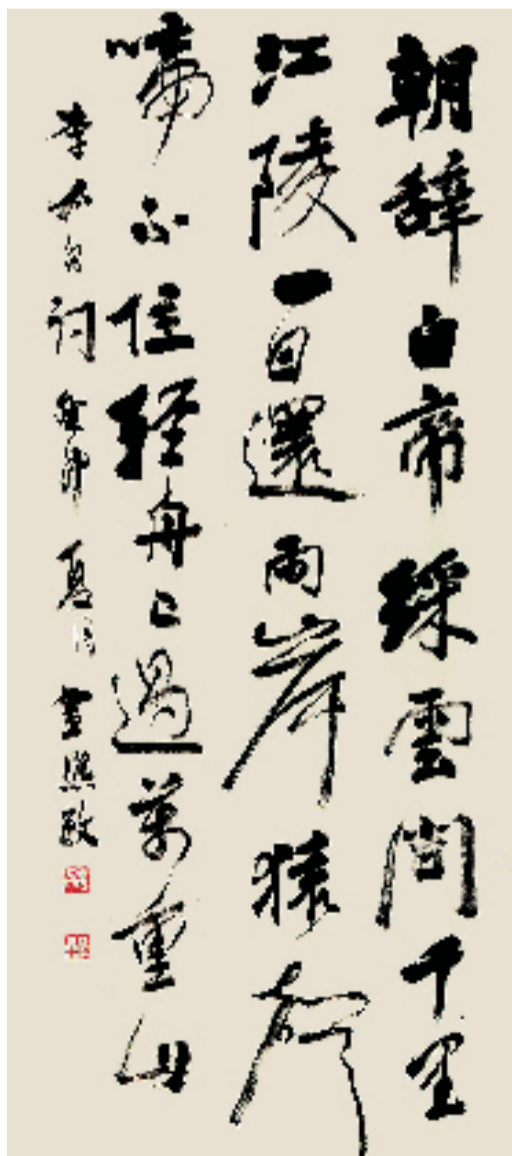 朝辭白帝綵雲間千里
江陵一日還兩岸猿聲
啼不住輕舟已過萬重山
李太白詞 夏月